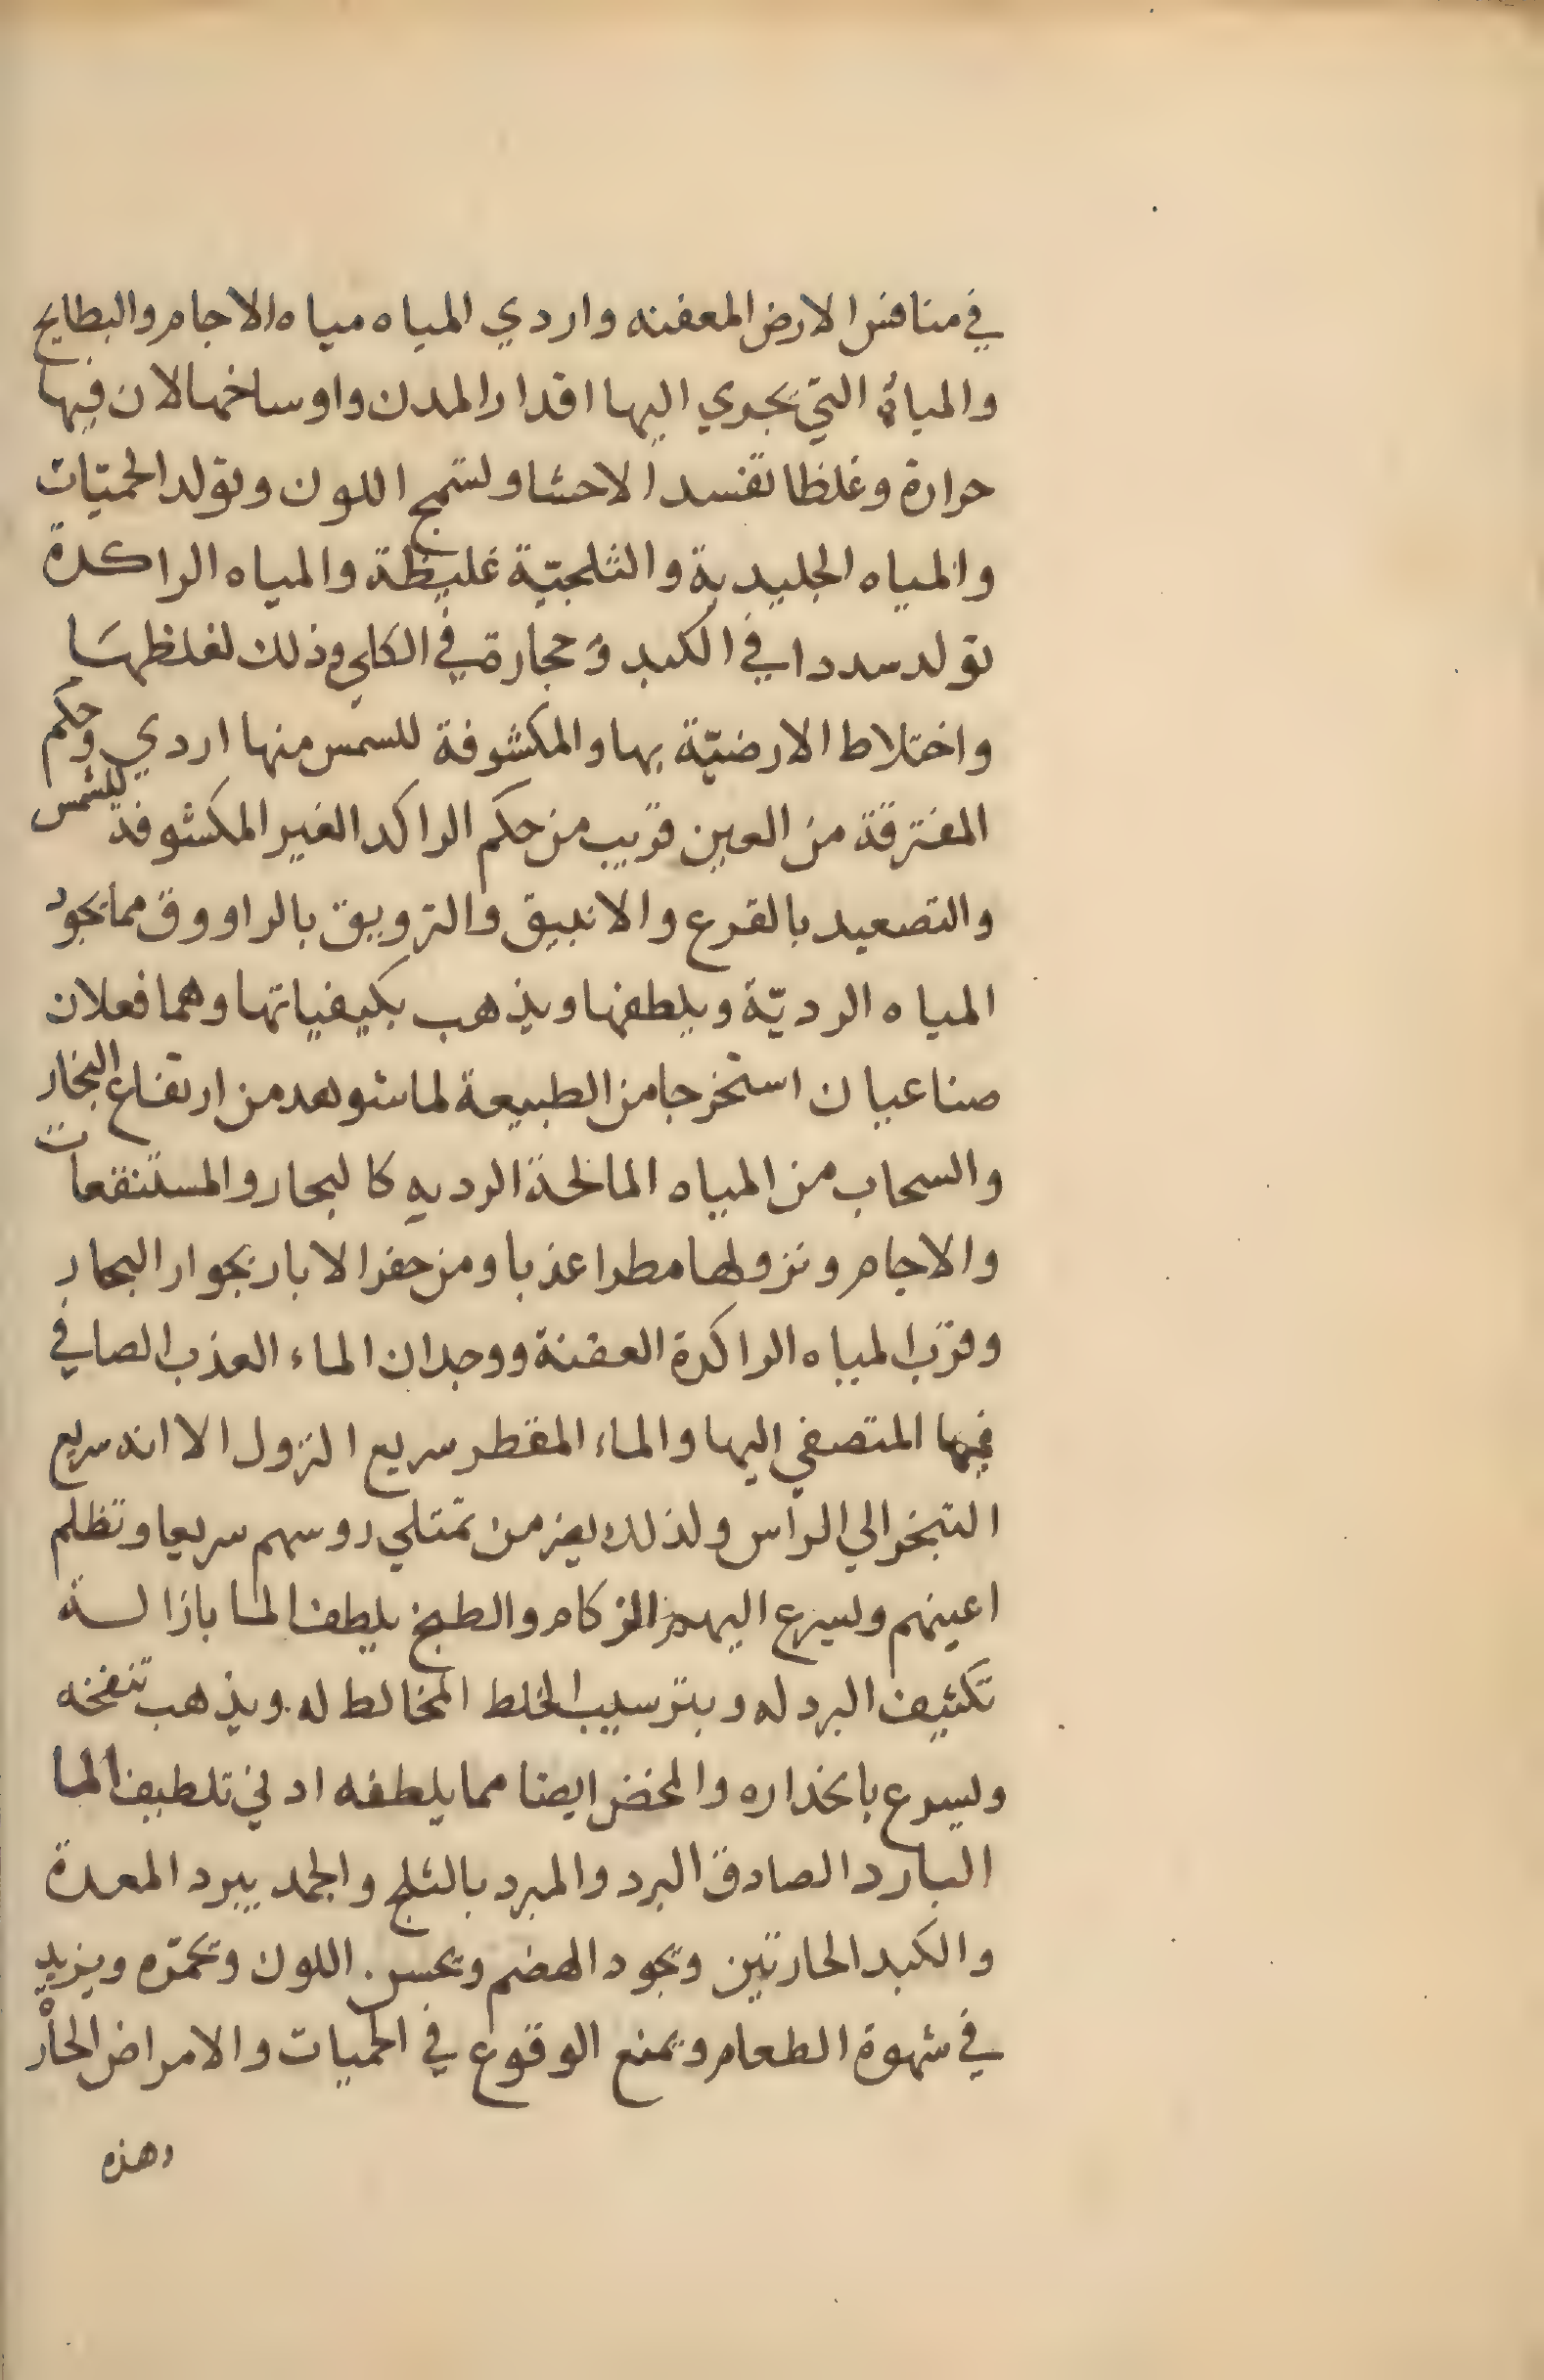 في منافس الارض المعفنه واردي المياه مياه الاجام والبطايح
والمياه التي تجري اليها اقدار المدن واوساخها لان فيها
حرارة وغلظا تفسد الاحشا وتسمج اللون وتولد الحميّات
والمياه الجليدية والثلجيّة غليظة والمياه الراكدة
تولد سددا في الكبد وحجارة في الكلي وذلك لغلظها
واختلاط الارضيّة بها والمكشوفة للسمس منها اردي وحكم
المفترقة من العين قريب من حكم الراكد الغير المكشوفة للشمس
والتصعيد بالقرع والانبيق والترويق بالراووق مما يجود
المياه الرديّة ويلطفها ويذهب بكيفياتها وهما فعلان
صناعيان استخرجا من الطبيعة لما شوهد من ارتفاع البخار
والسحاب من المياه المالحة الرديه كالبحار والمستنقعات
والاجام ونزولها مطرا عذبا ومن حفر الابار بجوار البحار
وقرب المياه الراكدة العفنة ووجدان الماء العذب الصافي
فيها المتصفي اليها والماء المقطر سريع النزول الا انه سريع
التبخر الي الراس ولذلك يعز من تمتلي روسهم سريعا وتظلم
اعينهم ويسرع اليهم الزكام والطبخ يلطف الما بازالة
تكثيف البرد له وبترسيب الخلط المخالط له ويذهب تنفخه
ويسرع بانحداره والمخض ايضا مما يلطفه ادني تلطيف الما
البارد الصادق البرد والمبرد بالثلج والجمد يبرد المعدة
والكبد الحارتين ويجود الهضم ويحسن اللون ويحمره ويزيد
في شهوة الطعام ويمنع الوقوع في الحميات والامراض الحار
وهذه